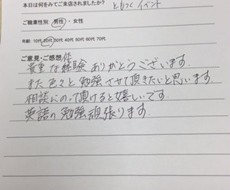 本日は何をみてご来店されましたか?
とりっくイベント
ご職業性別 男性・女性
年齢: 10代 20代 30代 40代 50代 60代 75代
ご意見・ご感想
貴重な経験ありがとうございます
また色々と勉強させて頂きたいと思います
相談にのって頂けると嬉しいです。
英語の勉強頑張ります